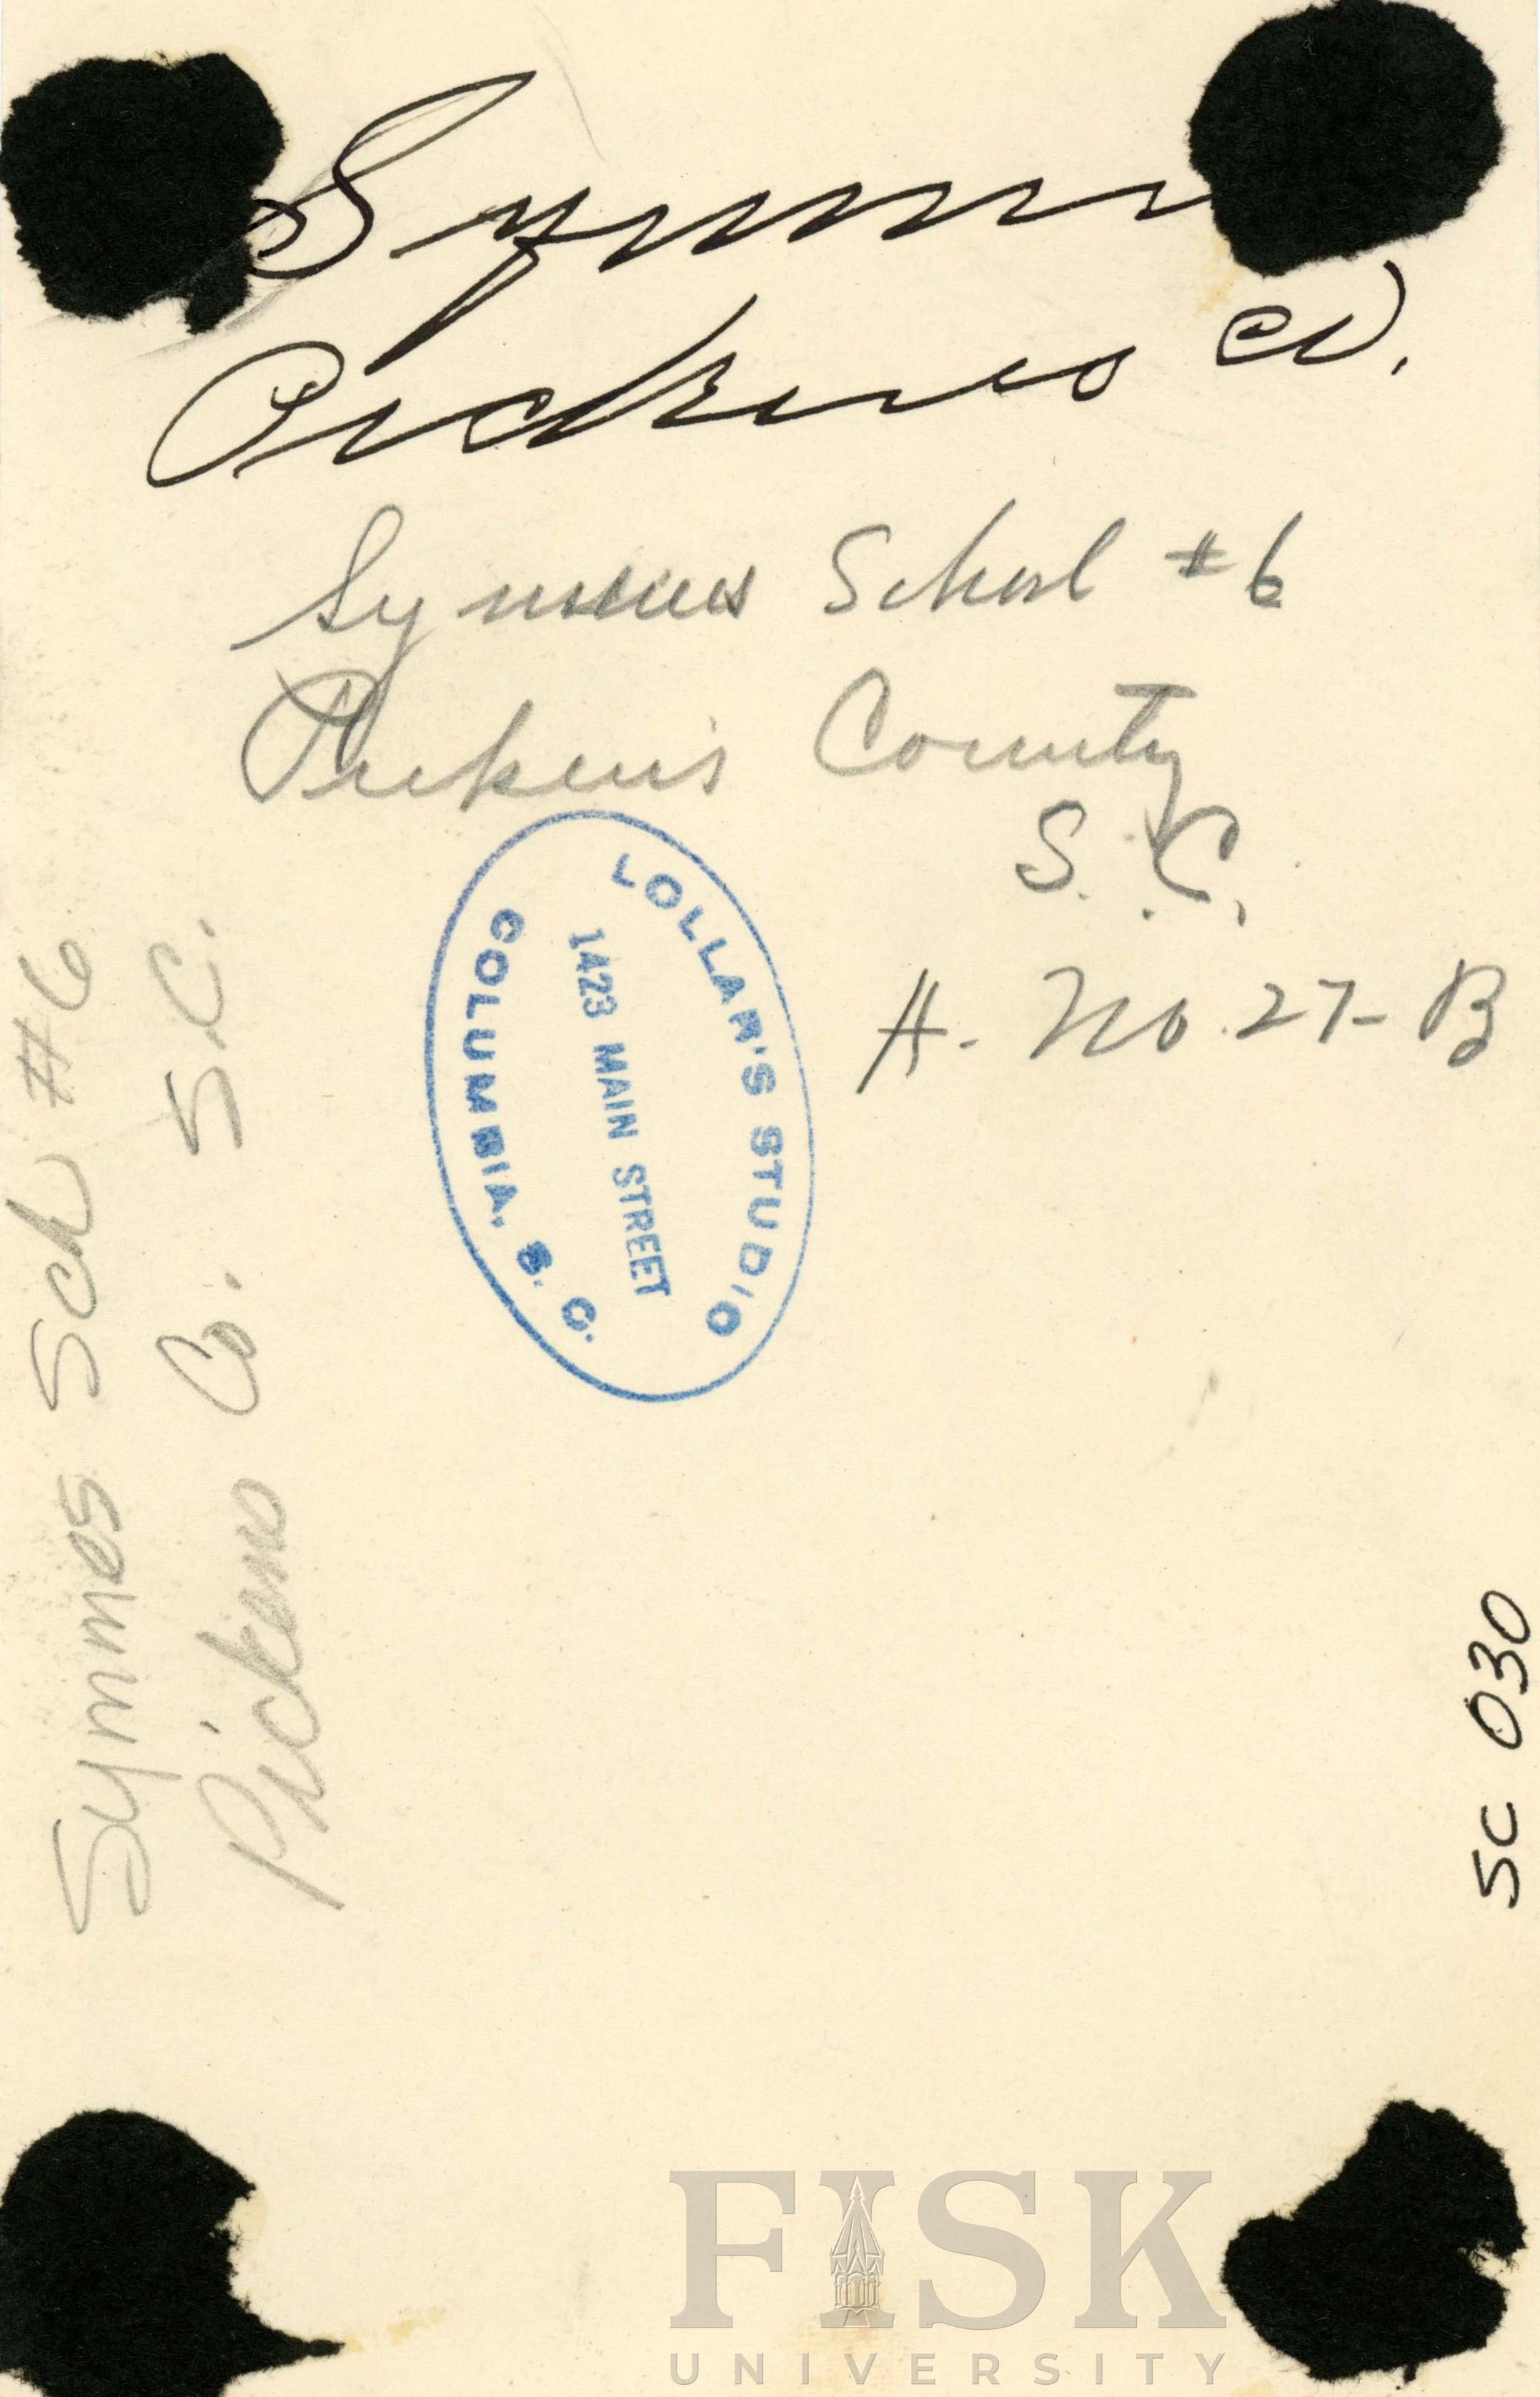 Symm
Pickens Co.
Symmes School #6
Pickens County
S.C.
A. No. 27-B
LOLLAR'S STUDIO
1423 MAIN STREET
COLUMBIA, S. C.
Symmes Sch #6
Pickens Co. S.C.
SC 030
FISK
UNIVERSITY